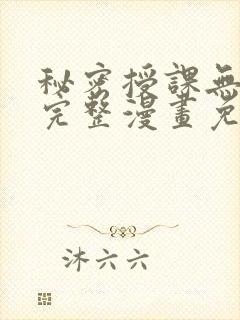 秘密授課無
完整漫畫免
沐六六